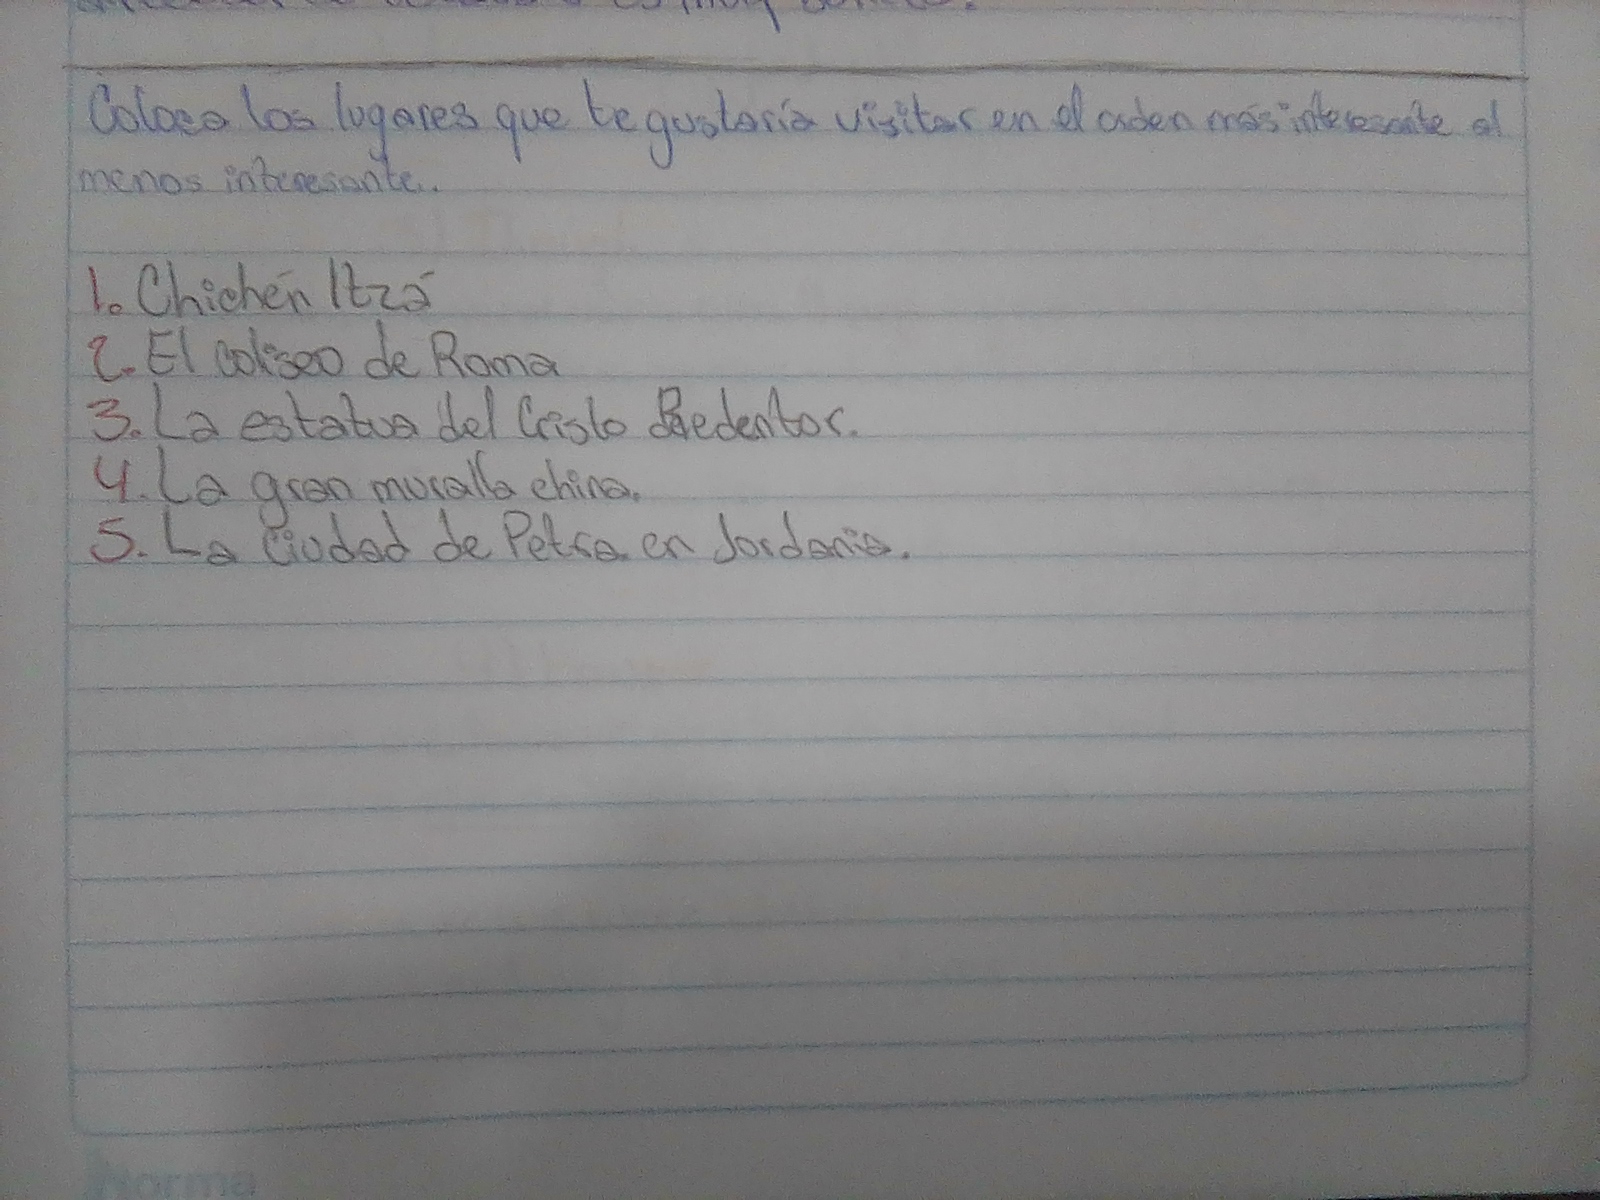 es muy bonito.
Coloca los lugares que te gustaría visitar en el orden más interesante al
menos interesante.
1. Chichén Itzá
2. El coliseo de Roma
3. La estatua del Cristo Redentor.
4. La gran muralla china.
5. La Ciudad de Petra en Jordania.
Norma